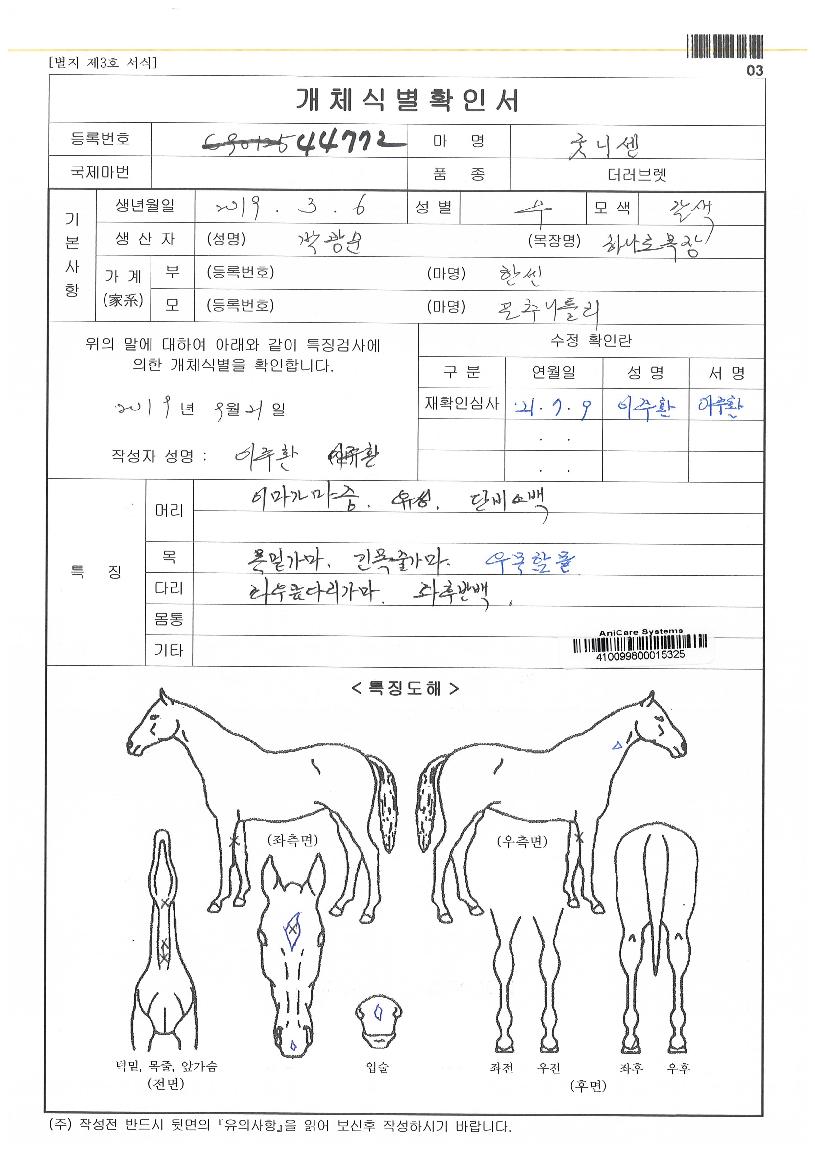 03
[별지 제3호 서식]
개체식별확인서
등록번호 44772 마 명 굿니센
국제마번 품 종 더러브렛
기본사항
생년월일 2019 . 3 . 6 성 별 수 모 색 갈색
생 산 자 (성명) 곽광문 (목장명) 하나로목장
가 계 (家系) 부 (등록번호) (마명) 한센
모 (등록번호) (마명)
위의 말에 대하여 아래와 같이 특징검사에
의한 개체식별을 확인합니다.
2019 년 9월 21 일
작성자 성명 : 이주환 이주환
수정 확인란
구 분 연월일 성 명 서 명
재확인심사 21. 7. 9 이주환 이주환
. .
. .
특 징
머리 이마가마중. 유성. 단비소백
목 목밑가마. 긴목줄가마. 우목찰흔
다리 좌후반백.
몸통
기타
AniCare Systems
410099800015325
< 특징도해 >
(좌측면) (우측면)
턱밑, 목줄, 앞가슴
(전면)
입술
좌전 우전 좌후 우후
(후면)
(주) 작성전 반드시 뒷면의 『유의사항』을 읽어 보신후 작성하시기 바랍니다.